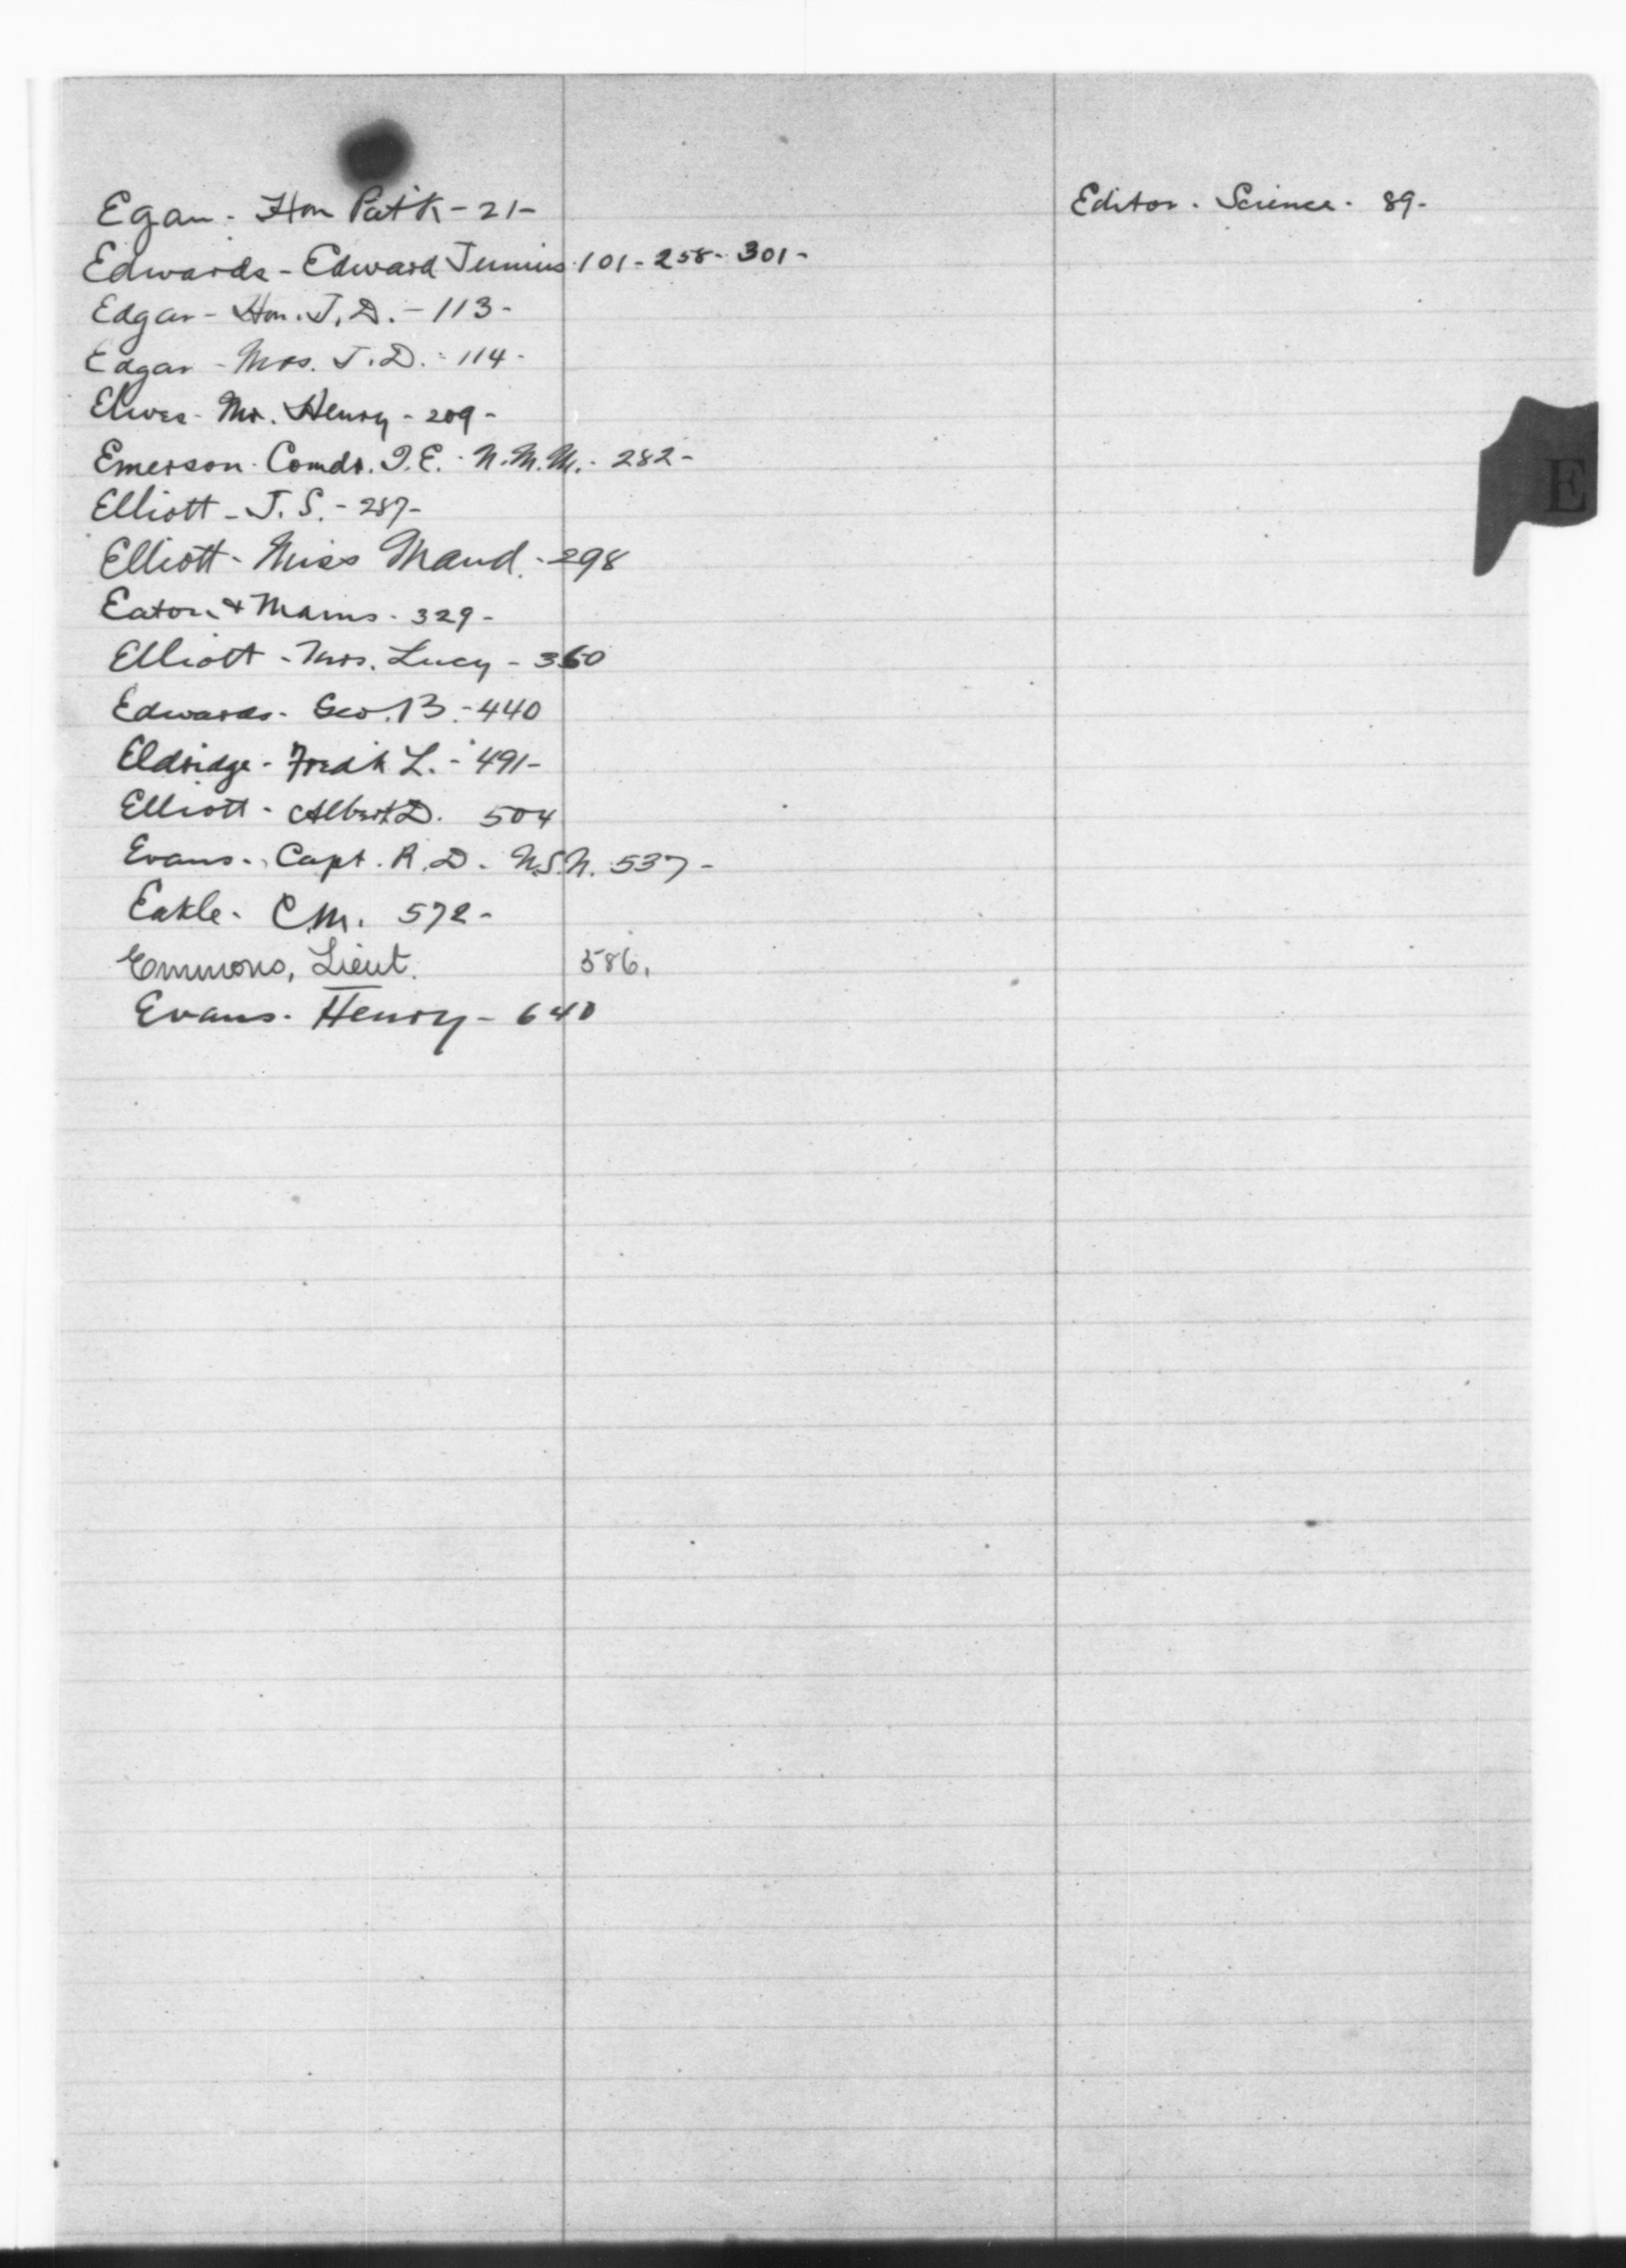 Egan - Hon Pat'k - 21 -
Edwards - Edward Junius 101 - 258 - 301 -
Edgar - Hon. J. D. - 113 -
Edgar - Mrs. J. D. - 114 -
Elwes - Mr. Henry - 209 -
Emerson - Comdr. I. E. - N.M.M. - 282 -
Elliott - J. S. - 287 -
Elliott - Miss Maud. - 298
Eaton & Mains - 329 -
Elliott - Mrs. Lucy - 360
Edwards - Geo. B. - 440
Eldridge - Fredk L. - 491 -
Elliott - Albert D. 504
Evans - Capt. R. D. - 537 -
Eakle - C.M. 572 -
Emmons, Lieut. 586.
Evans - Henry - 640
Editor - Science - 89 -
E